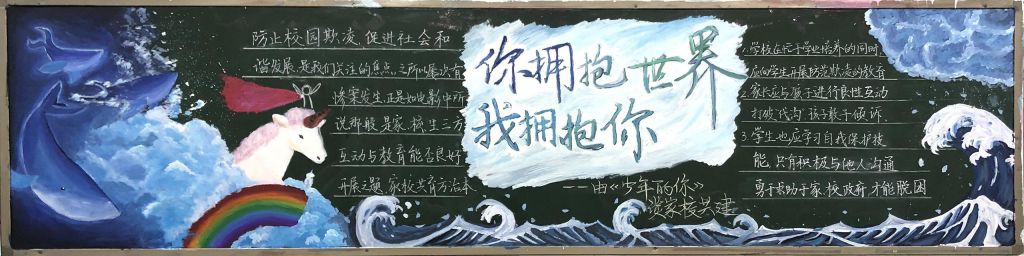 防止校园欺凌,促进社会和
谐发展,是我们关注的焦点,之所以屡次有
惨案发生,正是如电影中所
说那般是家、校、生三方
互动与教育能否良好
开展之题,家校共育方治本
你拥抱世界
我拥抱你
——由《少年的你》
谈家校共建
1.学校在忙于学业培养的同时
应向学生开展防范欺凌的教育
家长应与孩子进行良性互动
打破代沟,孩子敢于倾诉.
3.学生也应学习自我保护技
能,只有积极与他人沟通
勇于求助于家、校、政府才能脱困